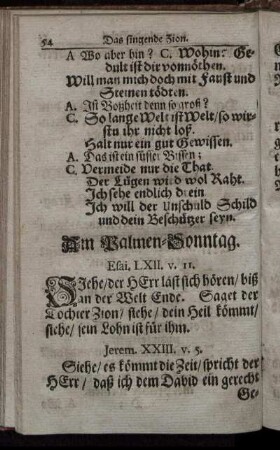 54 Das singende Zion.
A Wo aber bin? C. Wohin? Ge-
dult ist dir vonnöthen.
Will man mich doch mit Faust und
Steinen tödten.
A. Ist Boßheit denn so groß?
C. So lange Welt ist Welt/ so wir-
stu ihr nicht loß.
Halt nur ein gut Gewissen.
A. Das ist ein süsser Bissen;
C. Vermeide nur die That.
Der Lügen wird wol Raht.
Ich sehe endlich drein
Ich will der Unschuld Schild
und dein Beschützer seyn.
Am Palmen-Sonntag.
Esai, LXII. v. 11.
Siehe/ der HErr läst sich hören/ biß
an der Welt Ende. Saget der
Tochter Zion/ siehe/ dein Heil kömmt/
siehe/ sein Lohn ist für ihm.
Jerem. XXIII. v. 5.
Siehe/ es kömmt die Zeit/ spricht der
HErr/ daß ich dem David ein gerecht
Ge-